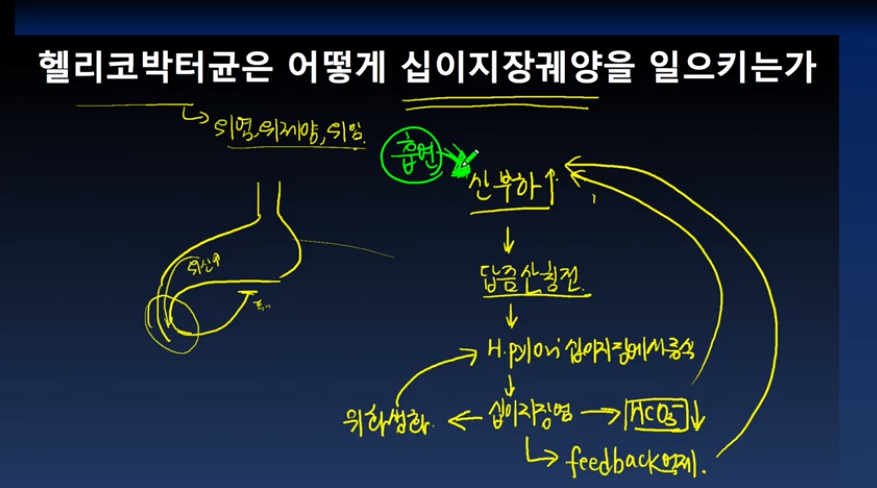 헬리코박터균은 어떻게 십이지장궤양을 일으키는가
위염, 위궤양, 위암
흡연
산부하↑
위산↑
담즙산 침전
H.pylori 십이지장에서 증식
위화생화 ← 십이지장염 → HCO3⁻↓
feedback억제.